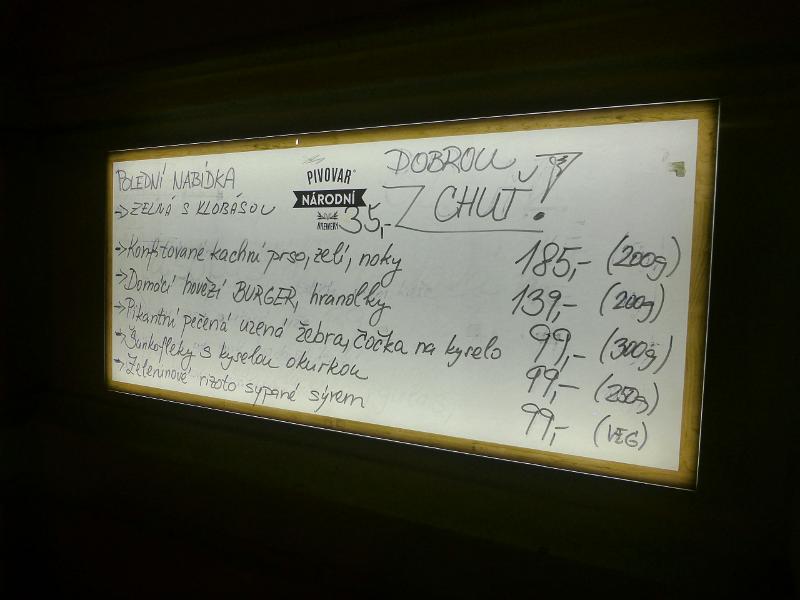 POLEDNÍ NABÍDKA
PIVOVAR
NÁRODNÍ
DOBROU
CHUŤ!
→ ZELNÁ S KLOBÁSOU 35,-
→ Konfitované kachní prso, zelí, noky 185,- (200g)
→ Domácí hovězí BURGER, hranolky 139,- (200g)
→ Pikantní pečená uzená žebra, čočka na kyselo 99,- (300g)
→ Šunkofleky s kyselou okurkou 99,- (250g)
→ Zeleninové rizoto sypané sýrem 99,- (VEG)